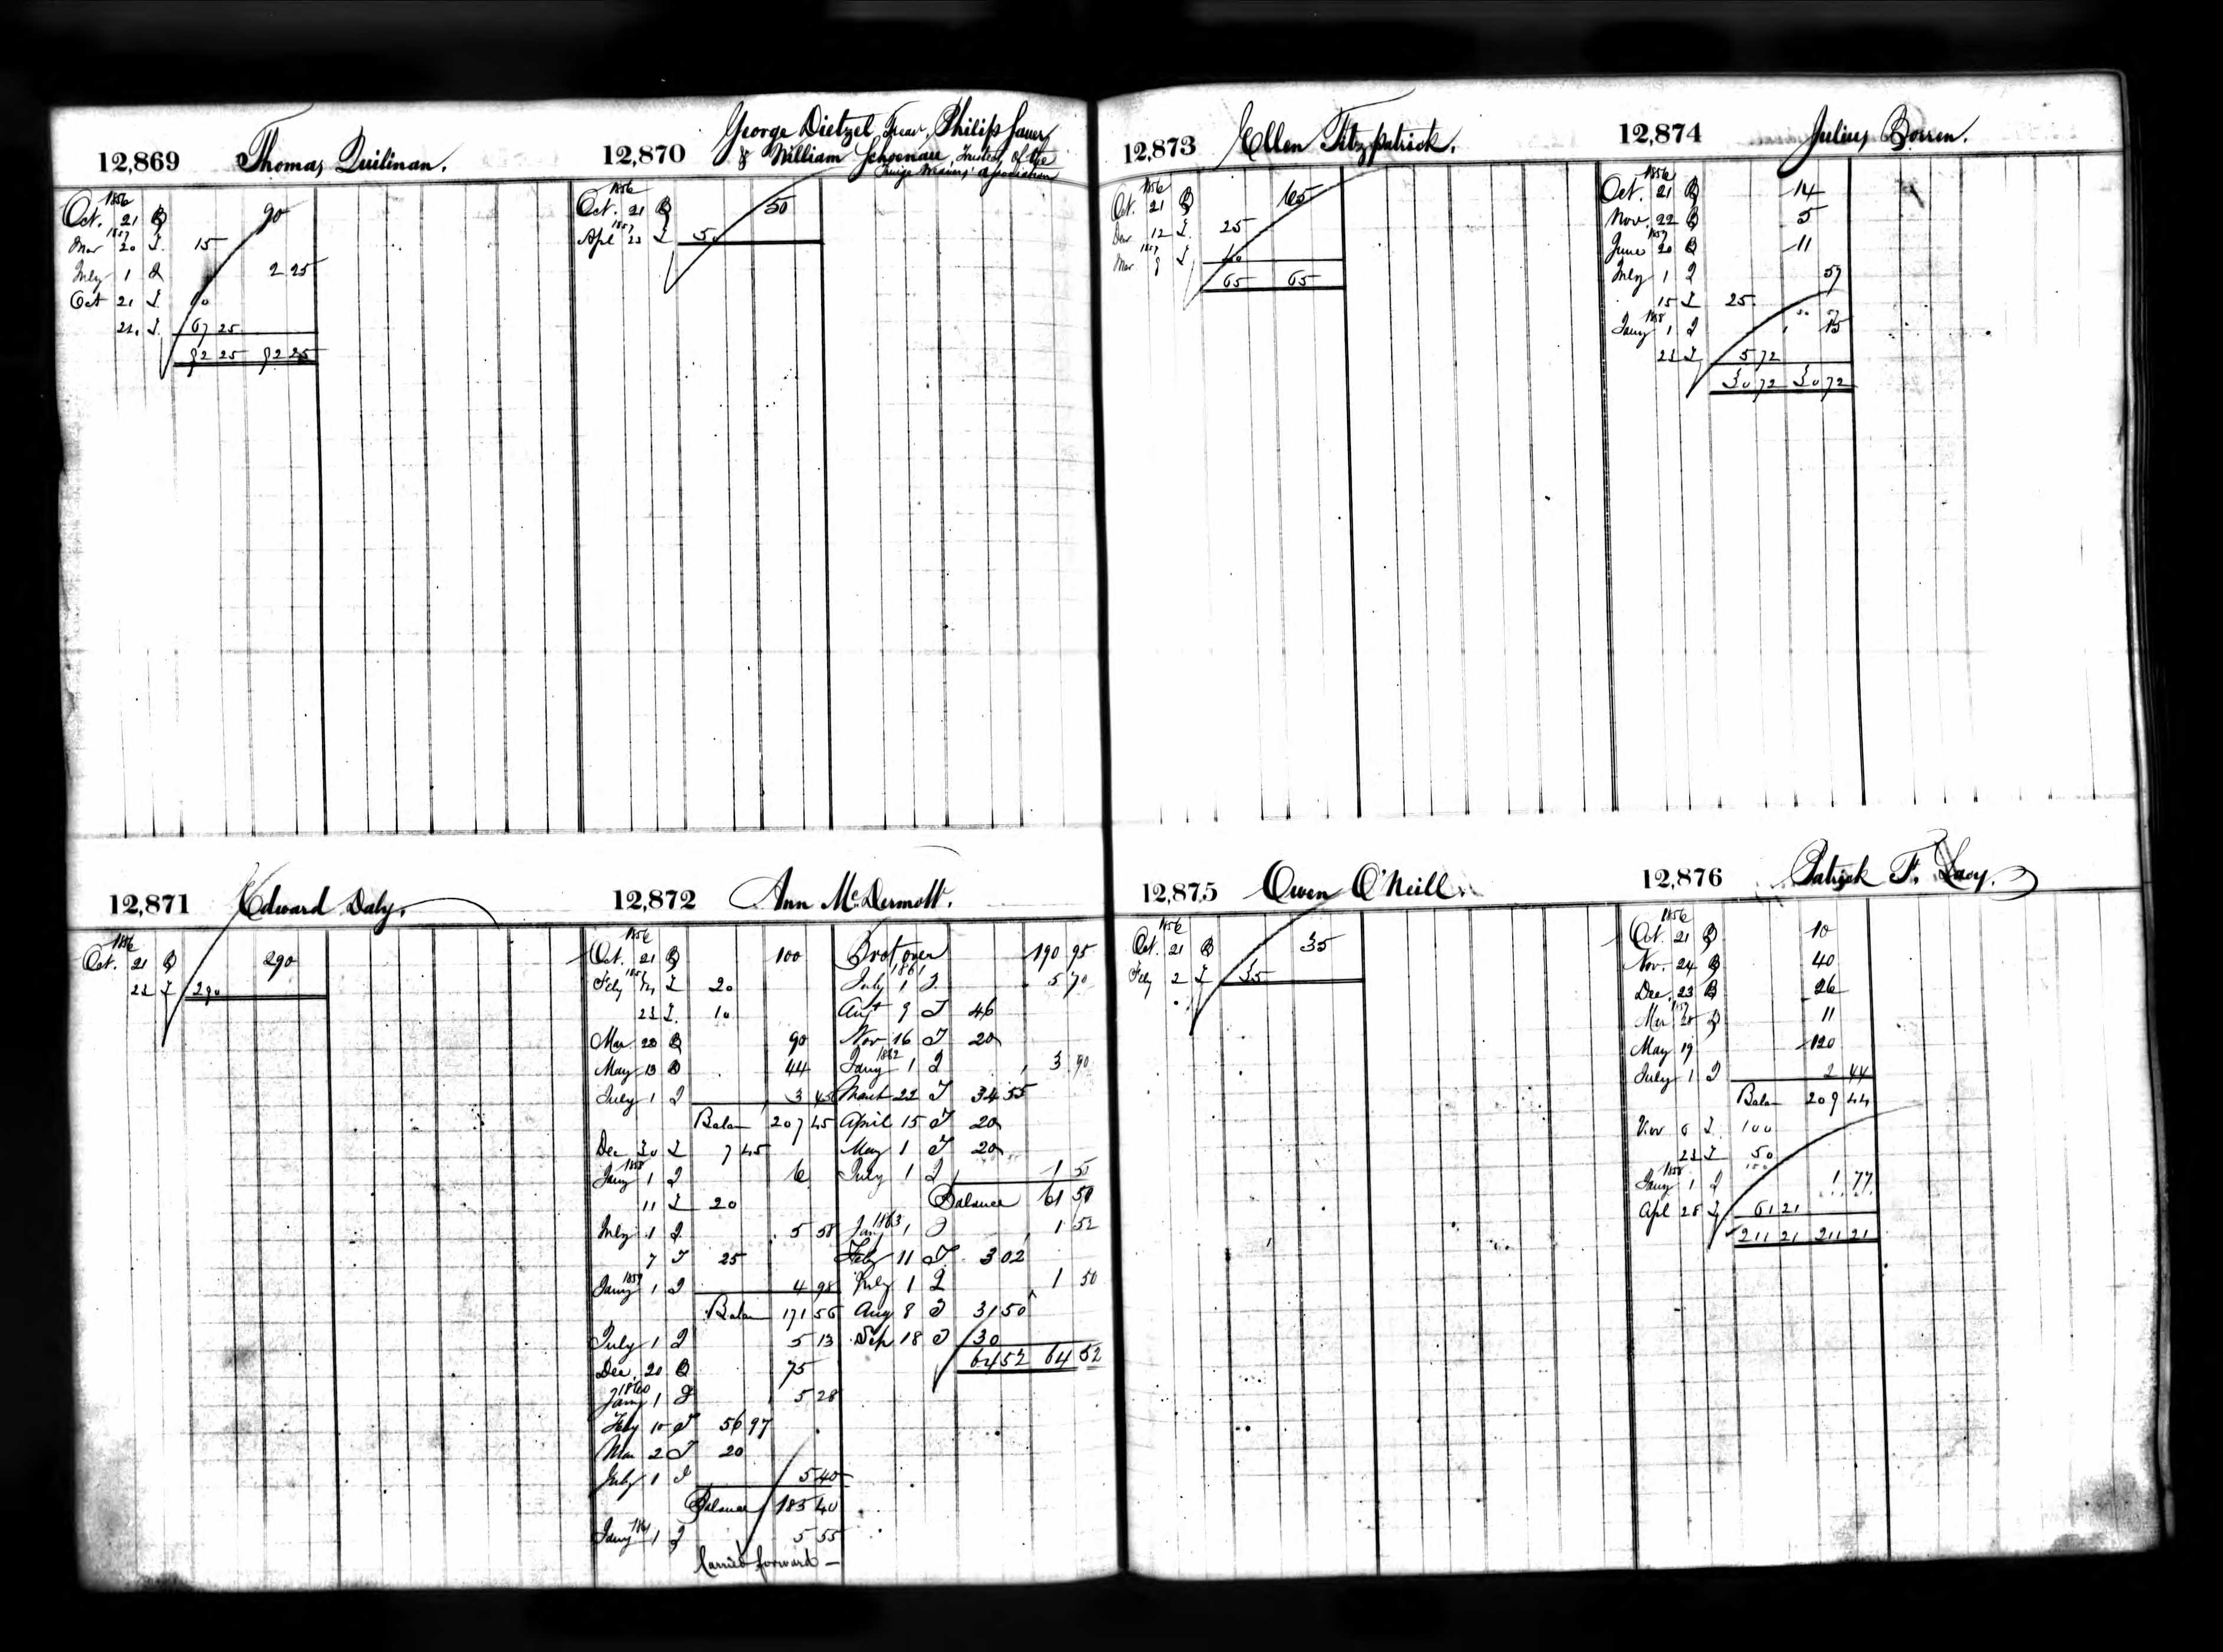 12,869 Thomas Quilinan.
1856
Oct. 21 D 90
1857
Mar 20 T 15
July 1 I 2 25
Oct 21 T 10
21. T. 67 25
92 25 92 25
12,870 George Dietzel Treas, Philip Sauer
& William Schoenau, Trustees of the
Fringe Weavers' Association
1856
Oct. 21 D 50
1857
Apl 23 T 50
12,873 Ellen Fitzpatrick.
1856
Oct. 21 D 65
Dec 12 T. 25
1857
Mar 9 T 40
65 65
12,874 Julius
1856
Oct. 21 D 14
Nov. 22 D 5
1857
June 20 D 11
July 1 I 57
15 T 25
1858
Jany 1 I 15
23 T 5 72
30 72 30 72
12,871 Edward Daly.
1856
Oct. 21 D 290
22 T 290
12,872 Ann McDermott.
1856
Oct. 21 D 100
1857
Feby T 20
23 T. 10
Mar 20 D 90
May 13 D 44
July 1 I 3 45
Balan 207 45
Dec 30 T 7 45
1858
Jany 1 I 6
11 T 20
July 1 I 5 58
7 T 25
1859
Jany 1 I 4 98
Balan 171 56
July 1 I 5 13
Dec. 20 D 75
1860
Jany 1 I 5 28
Feby 10 T 56 97
Mar 2 T 20
July 1 I 5 40
Balance 185 40
1861
Jany 1 I 5 55
Carried forward
Brot over 190 95
1861
July 1 I 5 70
Augt 9 T 46
Nov 16 T 20
1862
Jany 1 I 3 90
March 22 T 34 55
April 15 T 20
May 1 T 20
July 1 I 1 50
Balance 61 50
1863
Jany 1 I 1 52
Feby 11 T 3 02
July 1 I 1 50
Aug 8 T 31 50
Sep 18 T 30
64 52 64 52
12,875 Owen O'Neill.
1856
Oct. 21 D 35
Feby 2 T 35
12,876 Patrick F. Lacy.
1856
Oct. 21 D 10
Nov. 24 D 40
Dec. 23 D 26
1857
Mar 20 D 11
May 19 120
July 1 I 2 44
Balan 209 44
Nov 6 T. 100
23 T 50
1858
Jany 1 I 1 77
Apl 28 T 61 21
211 21 211 21